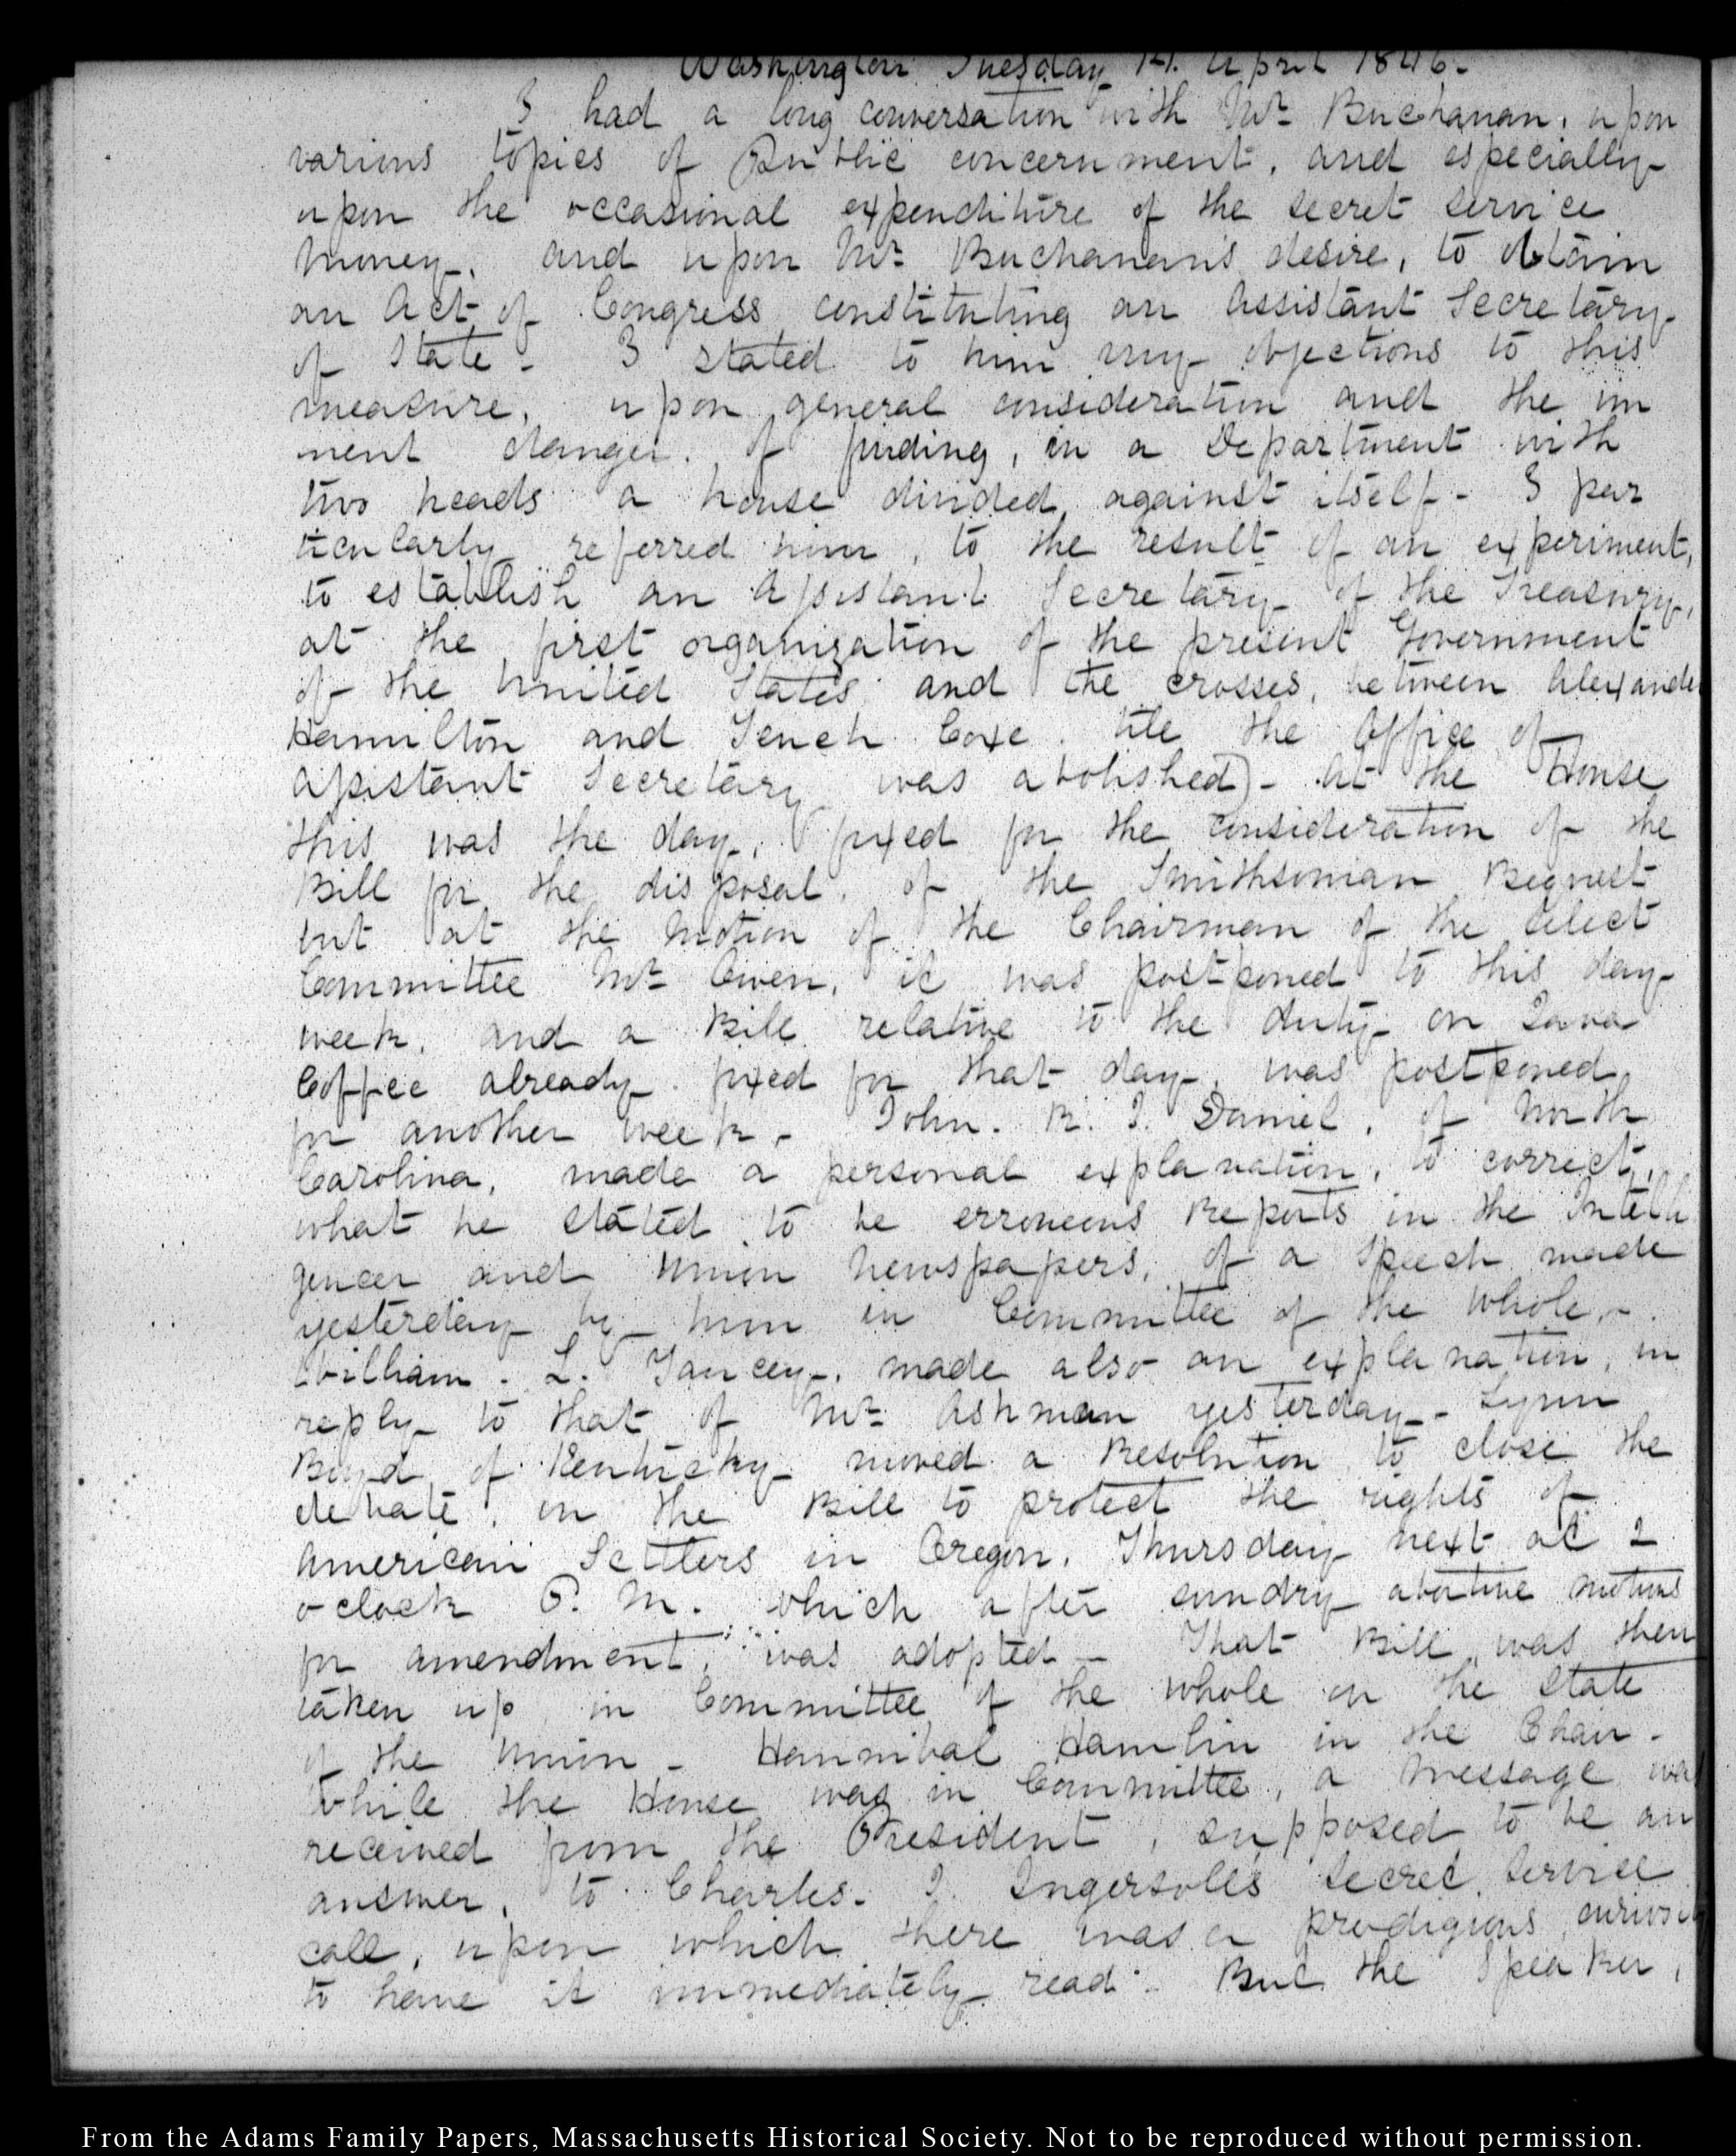 Washington Tuesday 14. April 1846.
I had a long conversation with Mr. Buchanan, upon
various topics of Public concernment, and especially
upon the occasional expenditure of the secret service
money, and upon Mr. Buchanan's desire, to obtain
an Act of Congress constituting an Assistant Secretary
of State - I stated to him my objections to this
measure, upon general consideration and the im
nent danger. of finding, in a Department with
two heads a house divided against itself - I par
ticularly referred him, to the result of an experiment,
to establish an Assistant Secretary of the Treasury,
at the first organization of the present Government
of the United States and the crosses, between Alexander
Hamilton and Tench Coxe. till the Office of
Assistant Secretary was abolished) - At the House
this was the day, fixed for the consideration of the
Bill for the disposal, of the Smithsonian Bequest
but at the motion of the Chairman of the select
Committee Mr. Owen, it was postponed to this day
week, and a Bill relative to the duty on Java
Coffee already fixed for that day, was postponed
for another week - John. R. J. Daniel, of North
Carolina, made a personal explanation, to correct,
what he stated to be erroneous Reports in the Intelli
gencer and Union Newspapers, of a Speech made
yesterday by him in Committee of the Whole -
William. L. Yancey, made also an explanation, in
reply to that of Mr. Ashman yesterday - Lynn
Boyd of Kentucky moved a Resolution to close the
debate, in the Bill to protect the rights of
American Settlers in Oregon, Thursday next at 2
o clock P. M. which after sundry abortive motions
for amendment, was adopted - That Bill was then
taken up in Committee of the whole on the State
of the Union - Hannibal Hamlin in the Chair -
While the House was in Committee, a Message was
received from the President, supposed to be an
answer, to Charles. J. Ingersoll's secret service
call, upon which there was a prodigious curiosity
to have it immediately read - But the Speaker,
From the Adams Family Papers, Massachusetts Historical Society. Not to be reproduced without permission.